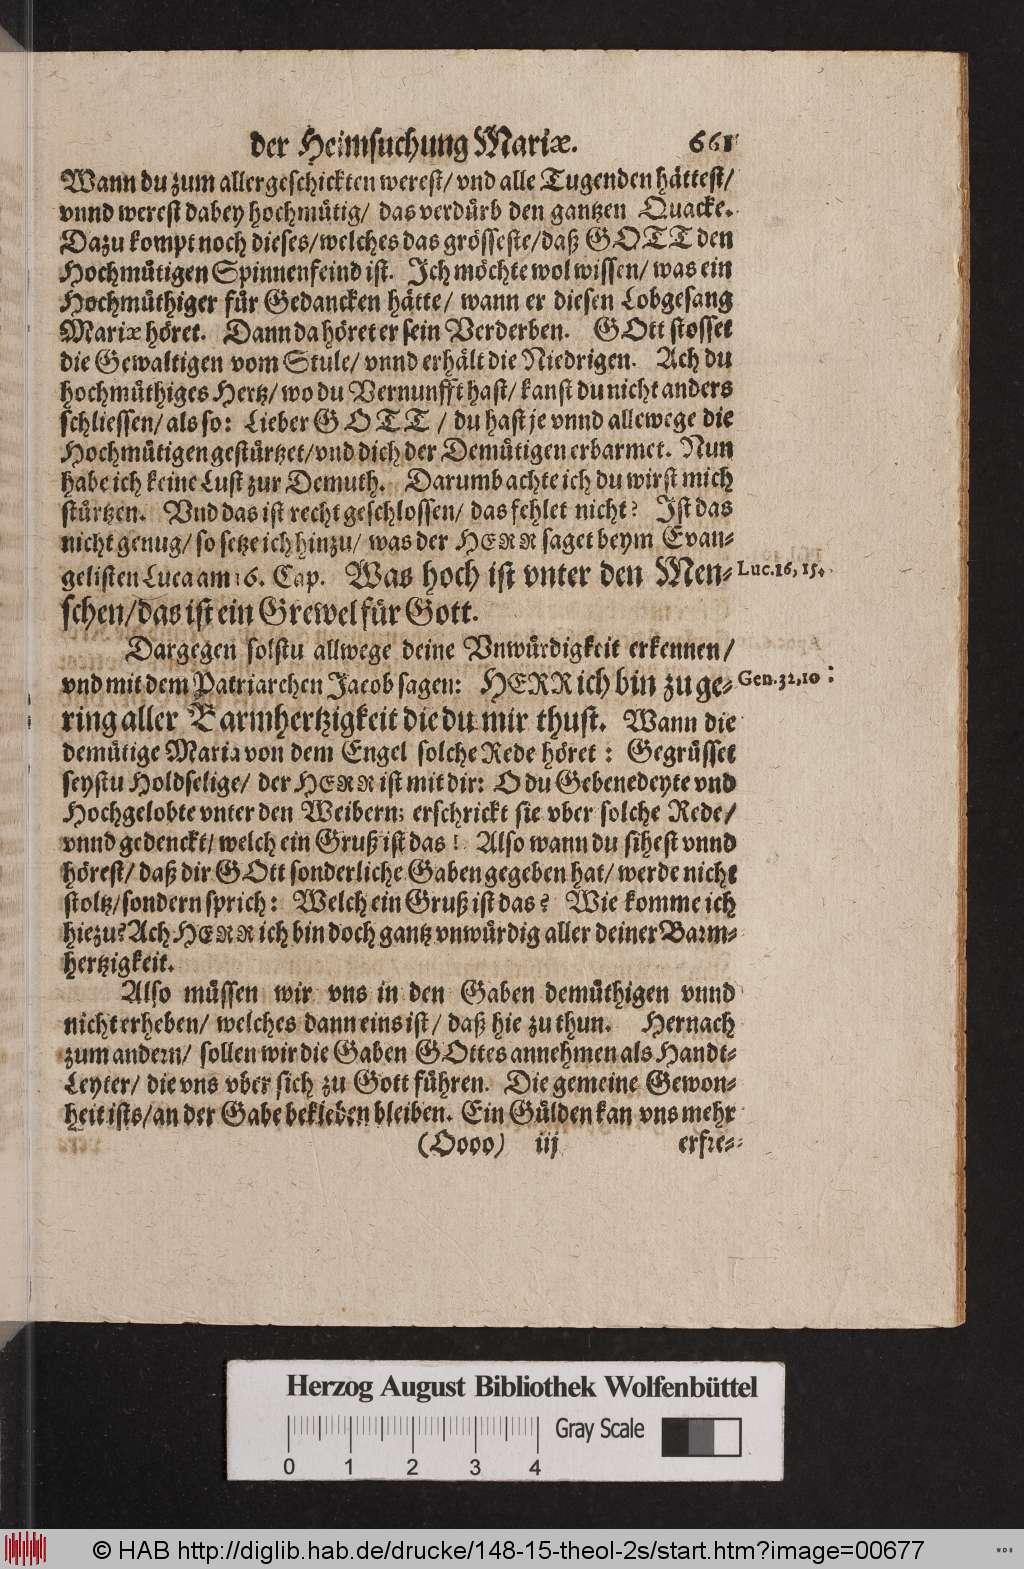 der Heimsuchung Mariæ. 661
Wann du zum allergeschickten werest/ vnd alle Tugenden hättest/
vnnd werest dabey hochmütig/ das verdürb den gantzen Quacke.
Dazu kompt noch dieses/welches das grösseste/daß GOTT den
Hochmütigen Spinnenfeind ist. Ich möchte wol wissen/ was ein
Hochmüthiger für Gedancken hätte/ wann er diesen Lobgesang
Mariæ höret. Dann da höret er sein Verderben. GOtt stosset
die Gewaltigen vom Stule/ vnnd erhält die Niedrigen. Ach du
hochmüthiges Hertz/ wo du Vernunfft hast/ kanst du nicht anders
schliessen/ als so: Lieber GOTT / du hast je vnnd allewege die
Hochmütigen gestürtzet/vnd dich der Demütigen erbarmet. Nun
habe ich keine Lust zur Demuth. Darumb achte ich du wirst mich
stürtzen. Vnd das ist recht geschlossen/ das fehlet nicht? Ist das
nicht genug/ so setze ich hinzu/ was der HERR saget beym Evan-
gelisten Luca am 16. Cap. Was hoch ist vnter den Men- Luc.16,15.
schen/das ist ein Grewel für Gott.
Dargegen solstu allwege deine Vnwürdigkeit erkennen/
vnd mit dem Patriarchen Jacob sagen: HERR ich bin zu ge- Gen.32,10:
ring aller Barmhertzigkeit die du mir thust. Wann die
demütige Maria von dem Engel solche Rede höret: Gegrüsset
seystu Holdselige/ der HERR ist mit dir: O du Gebenedeyte vnd
Hochgelobte vnter den Weibern; erschrickt sie vber solche Rede/
vnnd gedenckt/ welch ein Gruß ist das! Also wann du sihest vnnd
hörest/ daß dir GOtt sonderliche Gaben gegeben hat/ werde nicht
stoltz/sondern sprich: Welch ein Gruß ist das? Wie komme ich
hiezu? Ach HERR ich bin doch gantz vnwürdig aller deiner Barm-
hertzigkeit.
Also müssen wir vns in den Gaben demüthigen vnnd
nicht erheben/ welches dann eins ist/ daß hie zu thun. Hernach
zum andern/ sollen wir die Gaben GOttes annehmen als Handt-
Leyter/ die vns vber sich zu Gott führen. Die gemeine Gewon-
heit ists/an der Gabe bekleben bleiben. Ein Gülden kan vns mehr
(Oooo) iij erfre-
Herzog August Bibliothek Wolfenbüttel
Gray Scale
0 1 2 3 4
© HAB http://diglib.hab.de/drucke/148-15-theol-2s/start.htm?image=00677